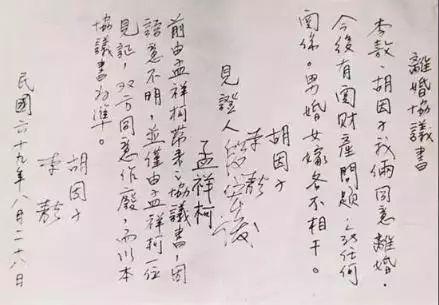 離婚協議書
李敖、胡因子我倆同意離婚.
今後有関財產問題之任何
関係。男婚女嫁各不相干。
胡因子
李敖
見證人
孟祥柯
前由孟祥柯帶来之協議書,因
語意不明,並僅由孟祥柯一位
見証,双方同意作廢,而以本
協議書為準。
胡因子
李敖
民國六十九年八月二十八日